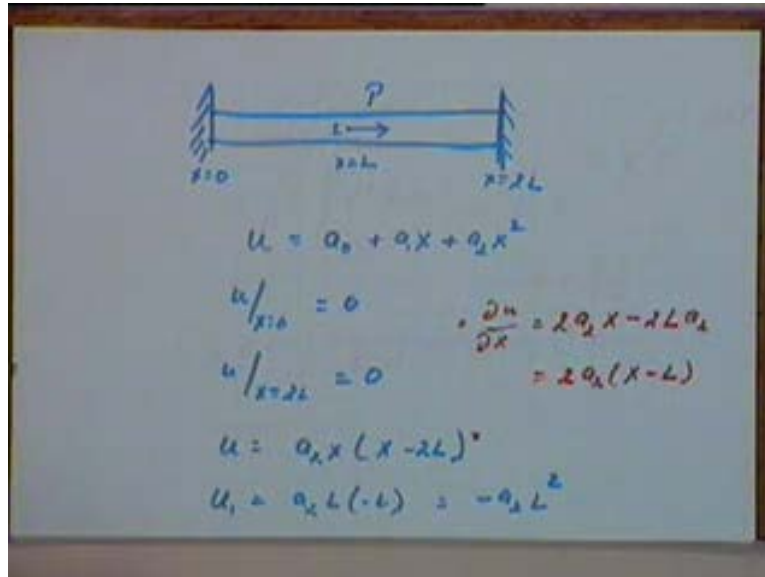 P
1
x=0
x=L
x=2L
u = a₀ + a₁x + a₂x²
u/ₓ₌₀ = 0
u/ₓ₌₂L = 0
∂u/∂x = 2a₂x - 2La₂
= 2a₂(x-L)
u = a₂x(x-2L)
u₁ = a₂L(-L) = -a₂L²